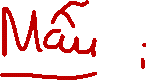 Mẫu :